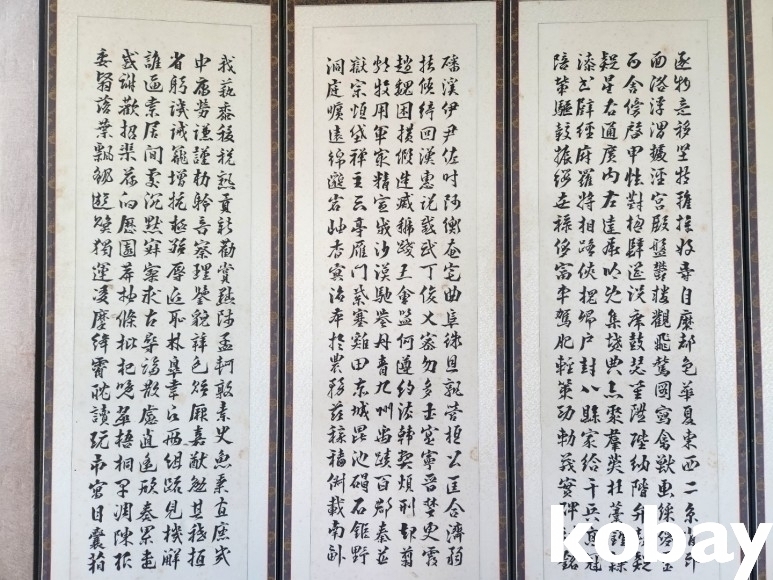 逐物意移堅持雅操好爵自縻都邑華夏東西二京背邙
面洛浮渭據涇宮殿盤鬱樓觀飛驚圖寫禽獸畫綵仙靈
丙舍傍啓甲帳對楹肆筵設席鼓瑟吹笙陞階納陛弁轉
疑星右通廣內左達承明既集墳典亦聚羣英杜藁鍾隸
漆書壁經府羅將相路俠槐卿戶封八縣家給千兵高冠
陪輦驅轂振纓世祿侈富車駕肥輕策功勒茂實碑銘
磻溪伊尹佐時阿衡奄宅曲阜微旦孰營桓公匡合濟弱
扶傾綺回漢惠說感武丁俊乂密勿多士寔寧晉楚更霸
趙魏困橫假途滅虢踐土會盟何遵約法韓弊煩刑起翦
頗牧用軍最精宣威沙漠馳譽丹青九州禹蹟百郡秦並
嶽宗恒岱禪主云亭雁門紫塞雞田赤城昆池碣石鉅野
洞庭曠遠綿邈巖岫杳冥治本於農務茲稼穡俶載南畝
我藝黍稷稅熟貢新勸賞黜陟孟軻敦素史魚秉直庶幾
中庸勞謙謹勅聆音察理鑑貌辨色貽厥嘉猷勉其祗植
省躬譏誡寵增抗極殆辱近恥林皋幸即兩組疏見機解
誰逼索居閒處沉默寂寥求古尋論散慮逍遙欣奏累遣
慼謝歡招渠荷的歷園莽抽條枇杷晚翠梧桐早凋陳根
委翳落葉飄颻遊鵾獨運凌摩絳霄耽讀翫市寓目囊箱
kobay